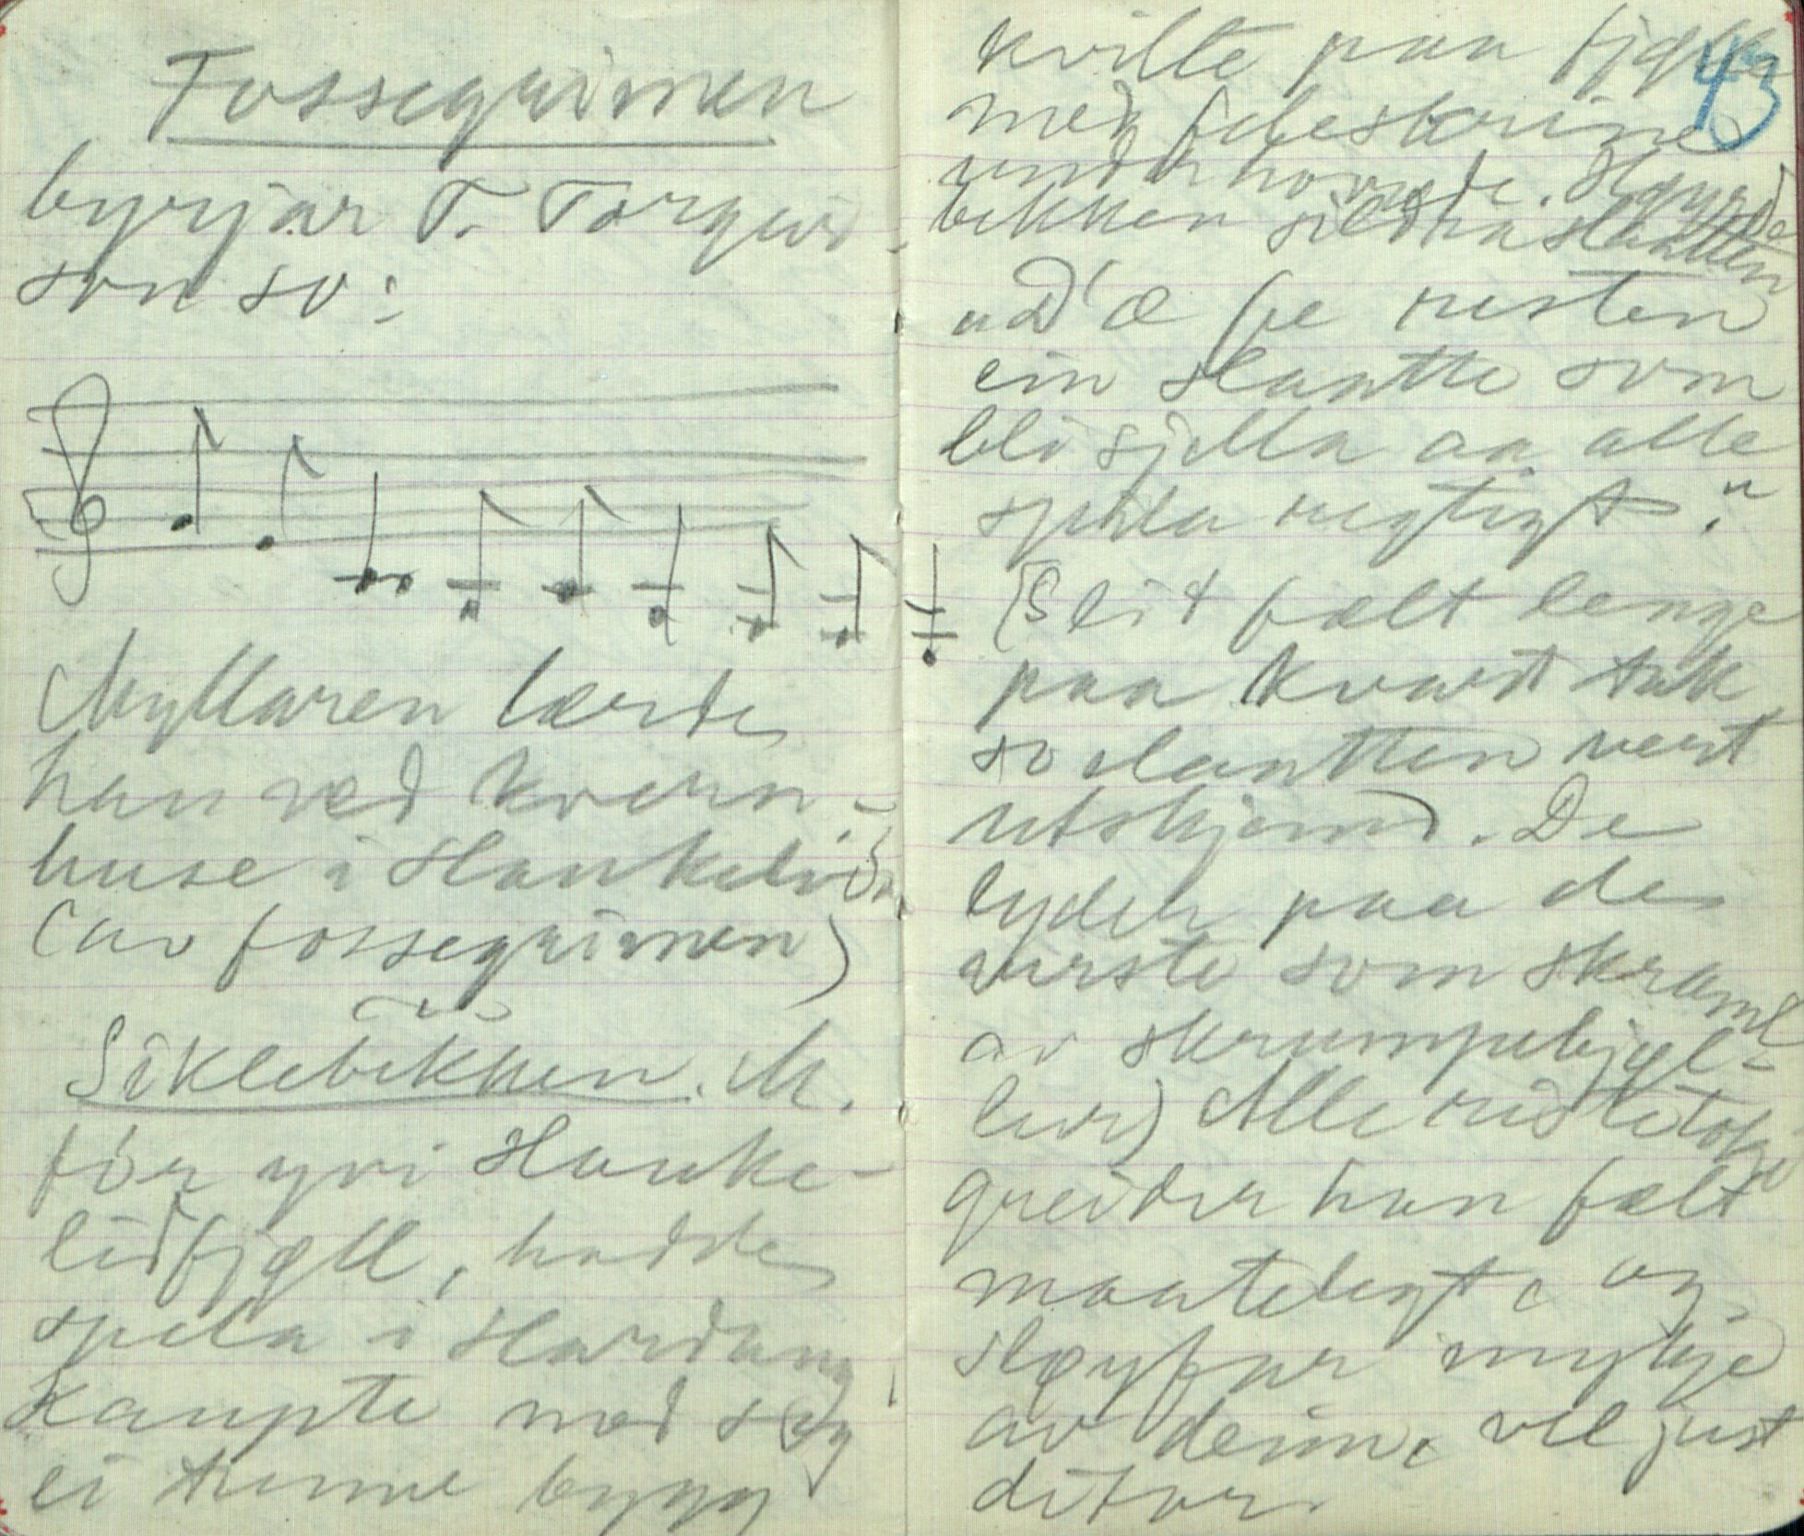 Fossegrimen
byrjar T. Torgeir-
son so:
Myllaren lærde
han ved kvern-
huse i Haukelid
(av fossegrimen)
Siklebekken. M.
fór yvi Hauke-
lidfjøll, hadde
spela i Hardang
kaupte med seg
ei tunne bygg
43
kvilte paa
med feleskrine
under hovude. Høyrde
bekken sildra slaatten
ad'æ fe resten
ein slaatte som
bli sjella aa alle
spela rigtigt."
(Slit fælt lenge
paa kvart tak
so slaatten vert
utskjemd. De
lyder paa de
verste som skraml
av skrumpebjøl-
lur) Alle ristetok
greider han fælt
maateligt, og
sløyfar mykje
av deim, vel just
ditor.